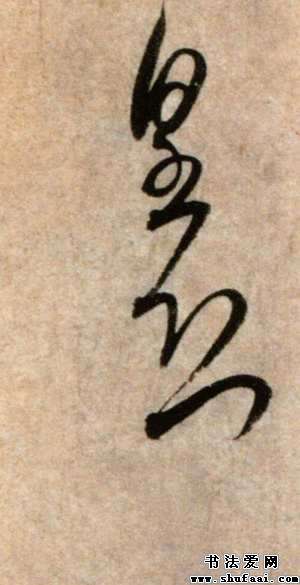 皇恐
书法爱网
www.shufaai.com